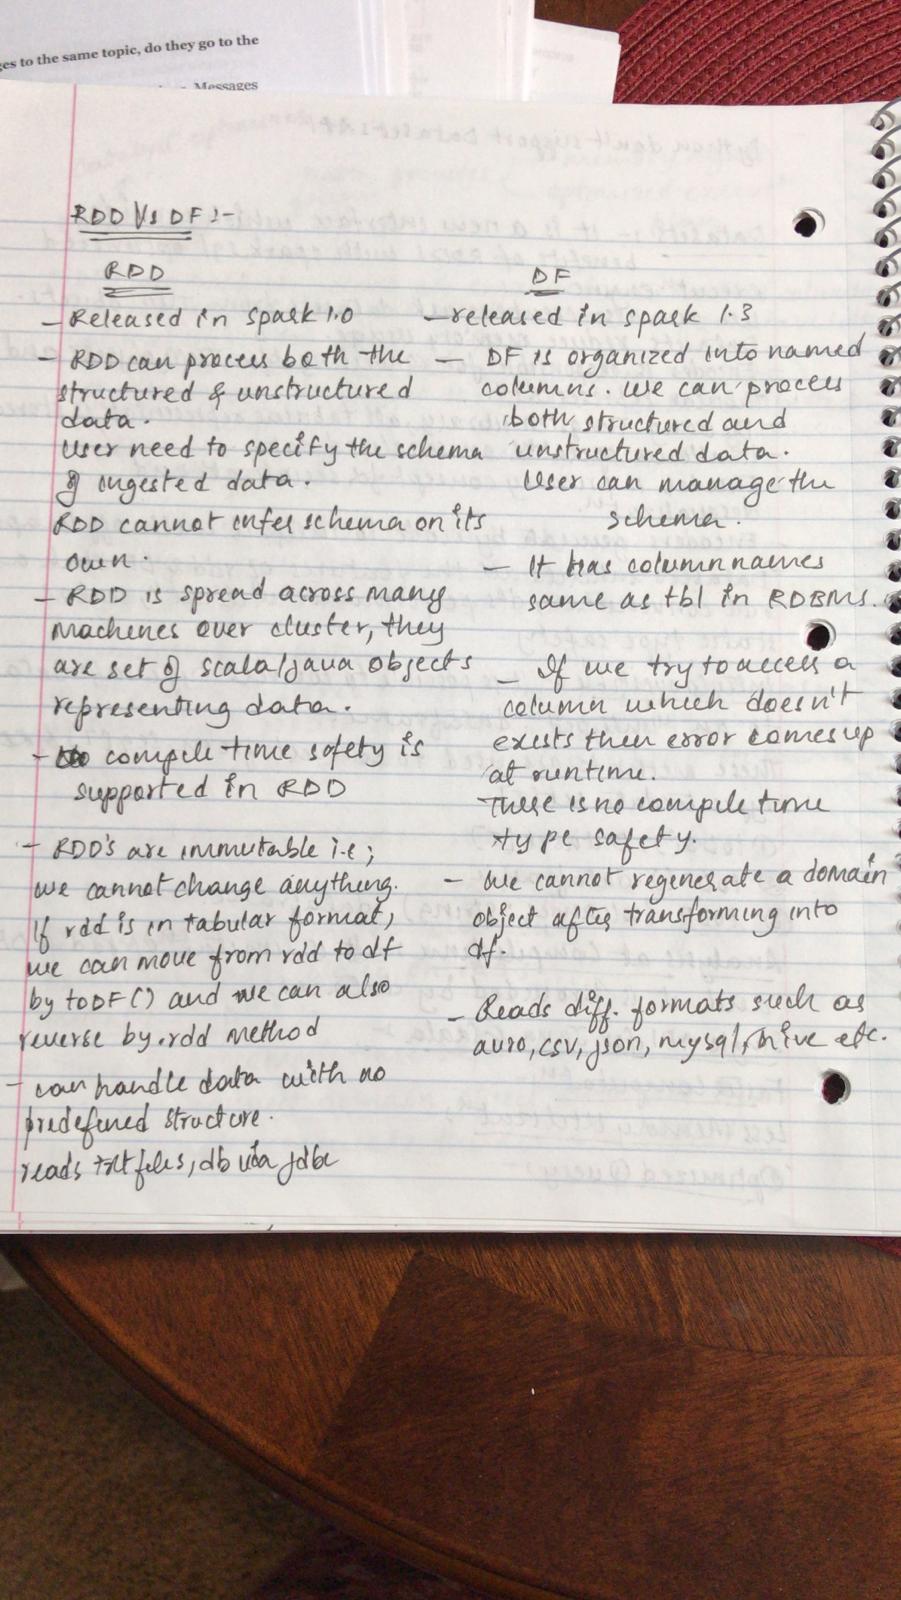 ges to the same topic, do they go to the
Messages
RDD Vs DF :-
RDD
- Released in spark 1.0
- RDD can process both the
structured & unstructured
data.
User need to specify the schema
of ingested data.
RDD cannot infer schema on its
own.
- RDD is spread across many
machines over cluster, they
are set of scala/java objects
representing data.
- compile time safety is
supported in RDD
- RDD's are immutable i.e;
we cannot change anything.
If rdd is in tabular format,
we can move from rdd to df
by toDF() and we can also
reverse by .rdd method
- can handle data with no
predefined structure.
reads txt files, db via jdbc
DF
- released in spark 1.3
- DF is organized into named
columns. we can process
both structured and
unstructured data.
User can manage the
schema.
- It has column names
same as tbl in RDBMS.
- If we try to access a
column which doesn't
exists then error comes up
at runtime.
There is no compile time
type safety.
- We cannot regenerate a domain
object after transforming into
df.
- Reads diff. formats such as
avro, csv, json, mysql, hive etc.